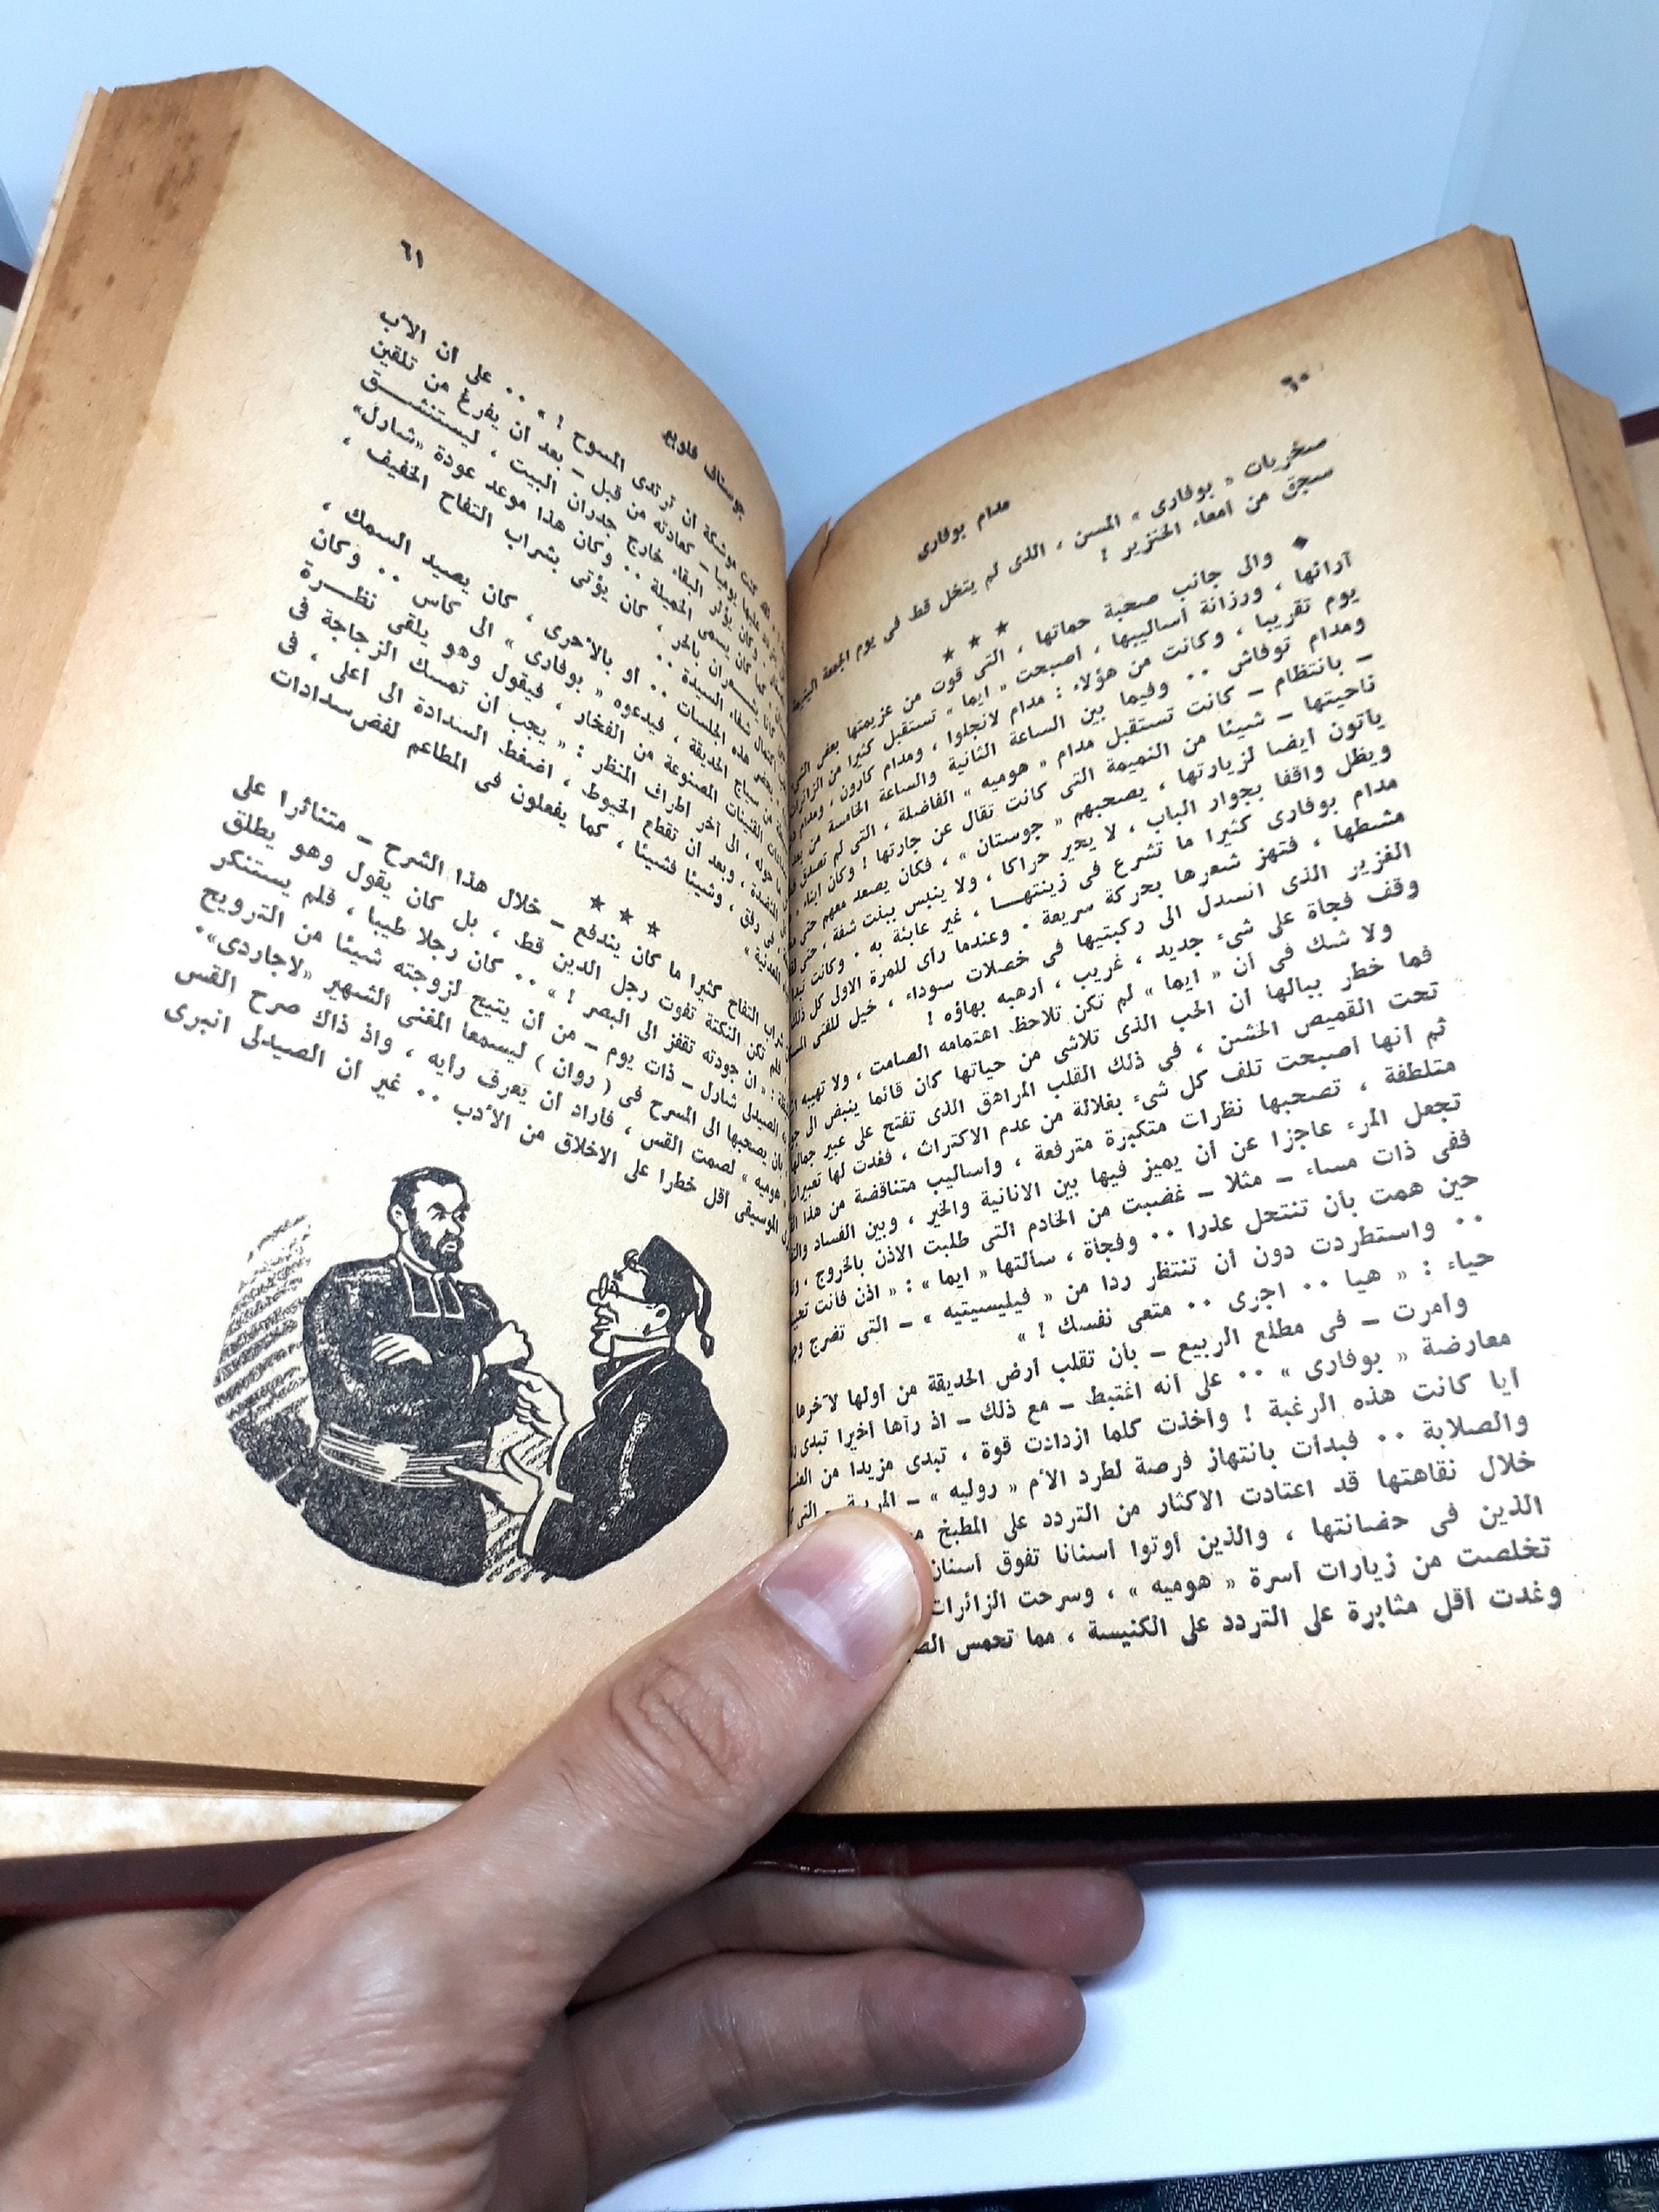 ٦٠
مدام بوفارى
سخريات « بوفارى » المسن ، الذى لم يتخل قط فى يوم الجمعة
سجق من أمعاء الخنزير !
★ ★
◆ والى جانب صحبة حماتها ، التى قوت من عزيمتها بعض
آرائها ، ورزانة أساليبها ، أصبحت « ايما » تستقبل كثيرا من
يوم تقريبا ، وكانت من هؤلاء : مدام لانجلوا ، ومدام كارون ، ومدام
ومدام توفاش .. وفيما بين الساعة الثانية والساعة الخامسة من
ـ بانتظام ـ كانت تستقبل مدام « هوميه » الفاضلة ، التى لم تصدق
ناحيتها ـ شيئا من النميمة التى كانت تقال عن جارتها ! وكان أبناء
يأتون أيضا لزيارتها ، يصحبهم « جوستان » ، فكان يصعد معهم حتى
ويظل واقفا بجوار الباب ، لا يحير حراكا ، ولا ينبس ببنت شفة ، حتى
مدام بوفارى كثيرا ما تشرع فى زينتهـا ، غير عابئة به . وكانت
مشطها ، فتهز شعرها بحركة سريعة . وعندما رأى للمرة الاولى كل ذلك
الغزير الذى انسدل الى ركبتيها فى خصلات سوداء ، خيل للفتى
وقف فجأة على شىء جديد ، غريب ، أرهبه بهاؤه !
ولا شك فى أن « ايما » لم تكن تلاحظ اهتمامه الصامت ، ولا تهيبه
فما خطر ببالها أن الحب الذى تلاشى من حياتها كان قائما ينبض الى
تحت القميص الخشن ، فى ذلك القلب المراهق الذى تفتح على عبير جمالها
ثم أنها أصبحت تلف كل شىء بغلالة من عدم الاكتراث ، فغدت لها تعبيرات
متلطفة ، تصحبها نظرات متكبرة مترفعة ، وأساليب متناقضة من هذا
تجعل المرء عاجزا عن أن يميز فيها بين الانانية والخير ، وبين الفساد
ففى ذات مساء ـ مثلا ـ غضبت من الخادم التى طلبت الاذن بالخروج ،
حين همت بأن تنتحل عذرا .. وفجأة ، سألتها « ايما » : « اذن فأنت
.. واستطردت دون أن تنتظر ردا من « فيليسيتيه » ـ التى تضرج
حياء : « هيا .. اجرى .. متعى نفسك ! »
وأمرت ـ فى مطلع الربيع ـ بأن تقلب أرض الحديقة من أولها لآخرها
معارضة « بوفارى » .. على أنه اغتبط ـ مع ذلك ـ اذ رآها أخيرا تبدى
أيا كانت هذه الرغبة ! وأخذت كلما ازدادت قوة ، تبدى مزيدا من
والصلابة .. فبدأت بانتهاز فرصة لطرد الأم « روليه » ـ المربية ـ التى
خلال نقاهتها قد اعتادت الاكثار من التردد على المطبخ
الذين فى حضانتها ، والذين أوتوا أسنانا تفوق أسنان
تخلصت من زيارات أسرة « هوميه » ، وسرحت الزائرات
وغدت أقل مثابرة على التردد على الكنيسة ، مما تحمس
٦١
جوستاف فلوبير
كنت موشكة أن ترتدى المسوح ! » .. على أن الأب
عليها يوميا ـ كعادته من قبل ـ بعد أن يفرغ من تلقين
وكان يؤثر البقاء خارج جدران البيت ، ليستنشـق
كما كان يسمى الخميلة .. وكان هذا موعد عودة «شارل»
كانا يشـعران بالحر ، كان يؤتى بشراب التفاح الخفيف ،
شفاء السيدة ..
هذه الجلسات .. أو بالأحرى ، كان يصيد السمك ،
من سياج الحديقة ، فيدعوه « بوفارى » الى كأس .. وكان
القنينات المصنوعة من الفخار ، فيقول وهو يلقى نظـرة
حوله ، الى آخر أطراف المنظر : « يجب أن تمسك الزجاجة فى
المنضدة ، وبعد أن تقطع الخيوط ، اضغط السدادة الى أعلى ، فى
فى رفق ، وشيئا فشيئا ، كما يفعلون فى المطاعم لفض سدادات
المعدنية »
★ ★ ★
شراب التفاح كثيرا ما كان يندفع ـ خلال هذا الشرح ـ متناثرا على
فلم تكن النكتة تفوت رجل الدين قط ، بل كان يقول وهو يطلق
: « أن جودته تقفز الى البصر ! » .. كان رجلا طيبا ، فلم يستنكر
الصيدلى شارل ـ ذات يوم ـ من أن يتيح لزوجته شيئا من الترويح
بأن يصحبها الى المسرح فى ( روان ) ليسمعا المغنى الشهير «لاجاردى».
« هوميه » لصمت القس ، فأراد أن يعرف رأيه ، واذ ذاك صرح القس
الموسيقى أقل خطرا على الاخلاق من الأدب .. غير أن الصيدلى انبرى